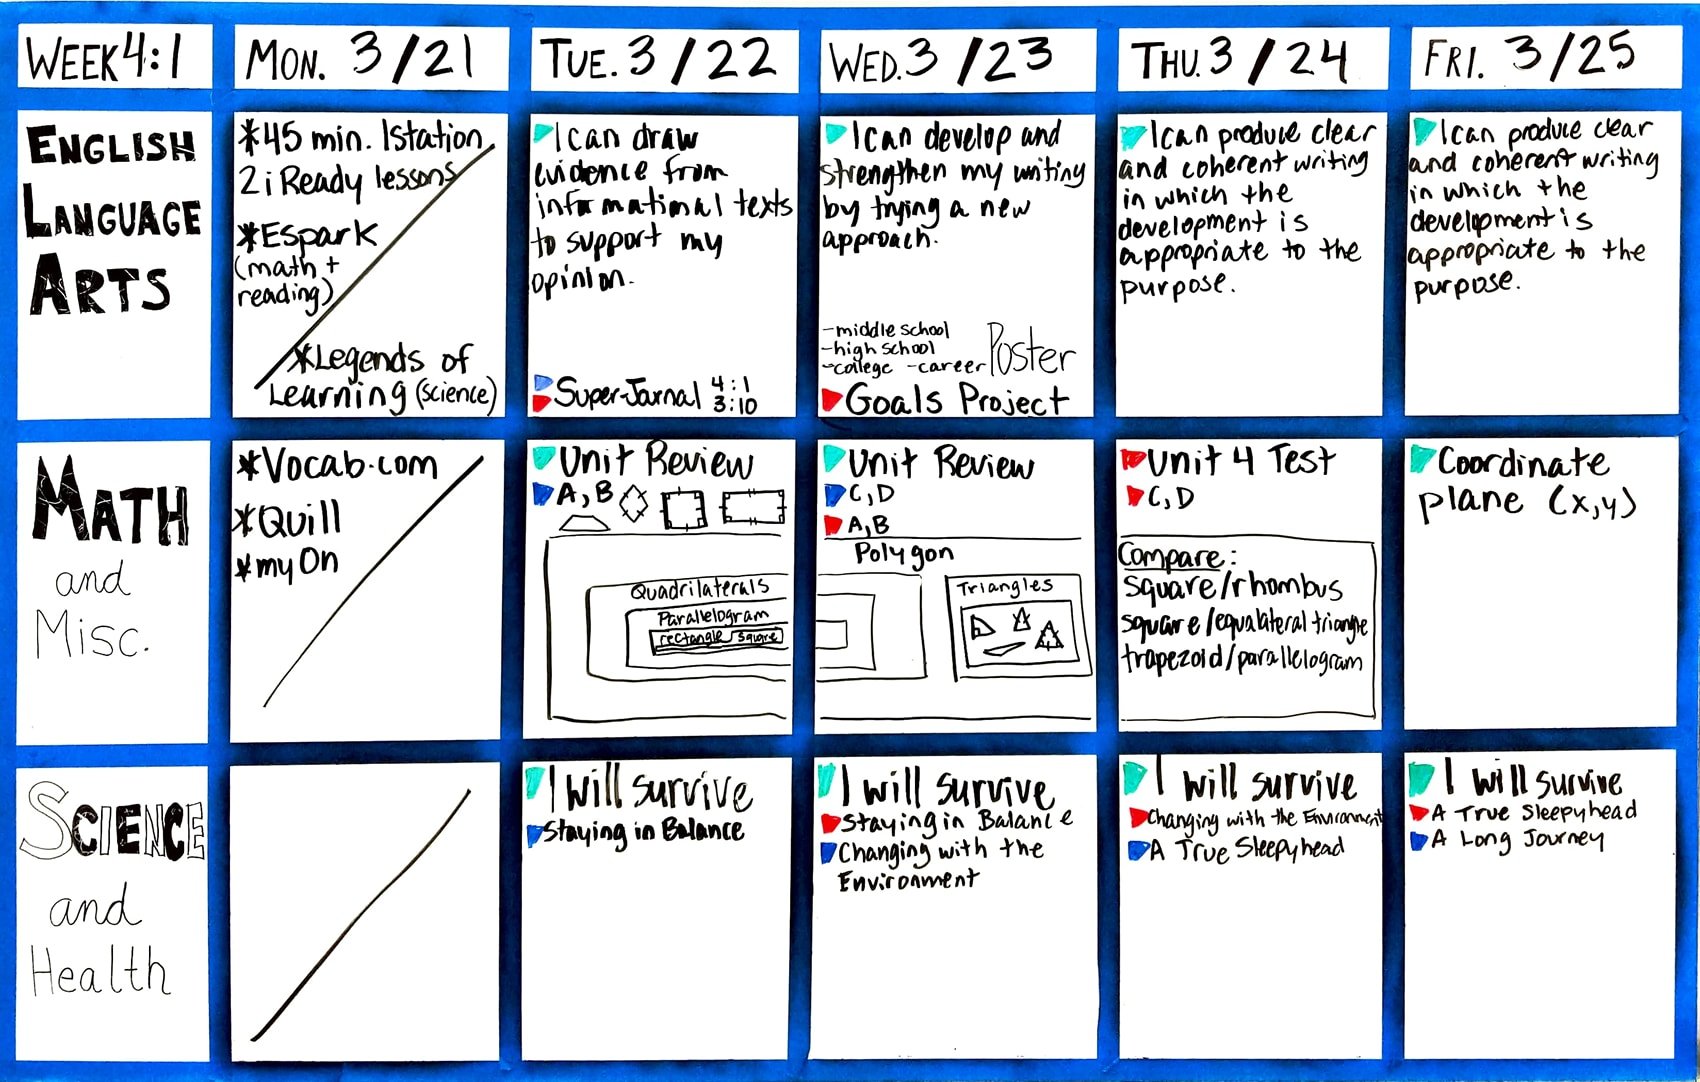 WEEK 4:1
MON. 3/21
TUE. 3/22
WED. 3/23
THU. 3/24
FRI. 3/25
ENGLISH
LANGUAGE
ARTS
*45 min. Istation
2 iReady lessons
*Espark
(math +
reading)
*Legends of
Learning (science)
I can draw
evidence from
informational texts
to support my
opinion.
Super-Journal 4:1
3:10
I can develop and
strengthen my writing
by trying a new
approach.
-middle school
-high school
-college -career
Poster
Goals Project
I can produce clear
and coherent writing
in which the
development is
appropriate to the
purpose.
I can produce clear
and coherent writing
in which the
development is
appropriate to the
purpose.
MATH
and
Misc.
*Vocab.com
*Quill
*myOn
Unit Review
A, B
Quadrilaterals
Parallelogram
rectangle square
Unit Review
C, D
A, B
Polygon
Triangles
Unit 4 Test
C, D
Compare:
square/rhombus
square/equalateral triangle
trapezoid/parallelogram
Coordinate
plane (x,y)
SCIENCE
and
Health
I will survive
Staying in Balance
I will survive
Staying in Balance
Changing with the
Environment
I will survive
Changing with the Environment
A True Sleepyhead
I will survive
A True Sleepyhead
A Long Journey